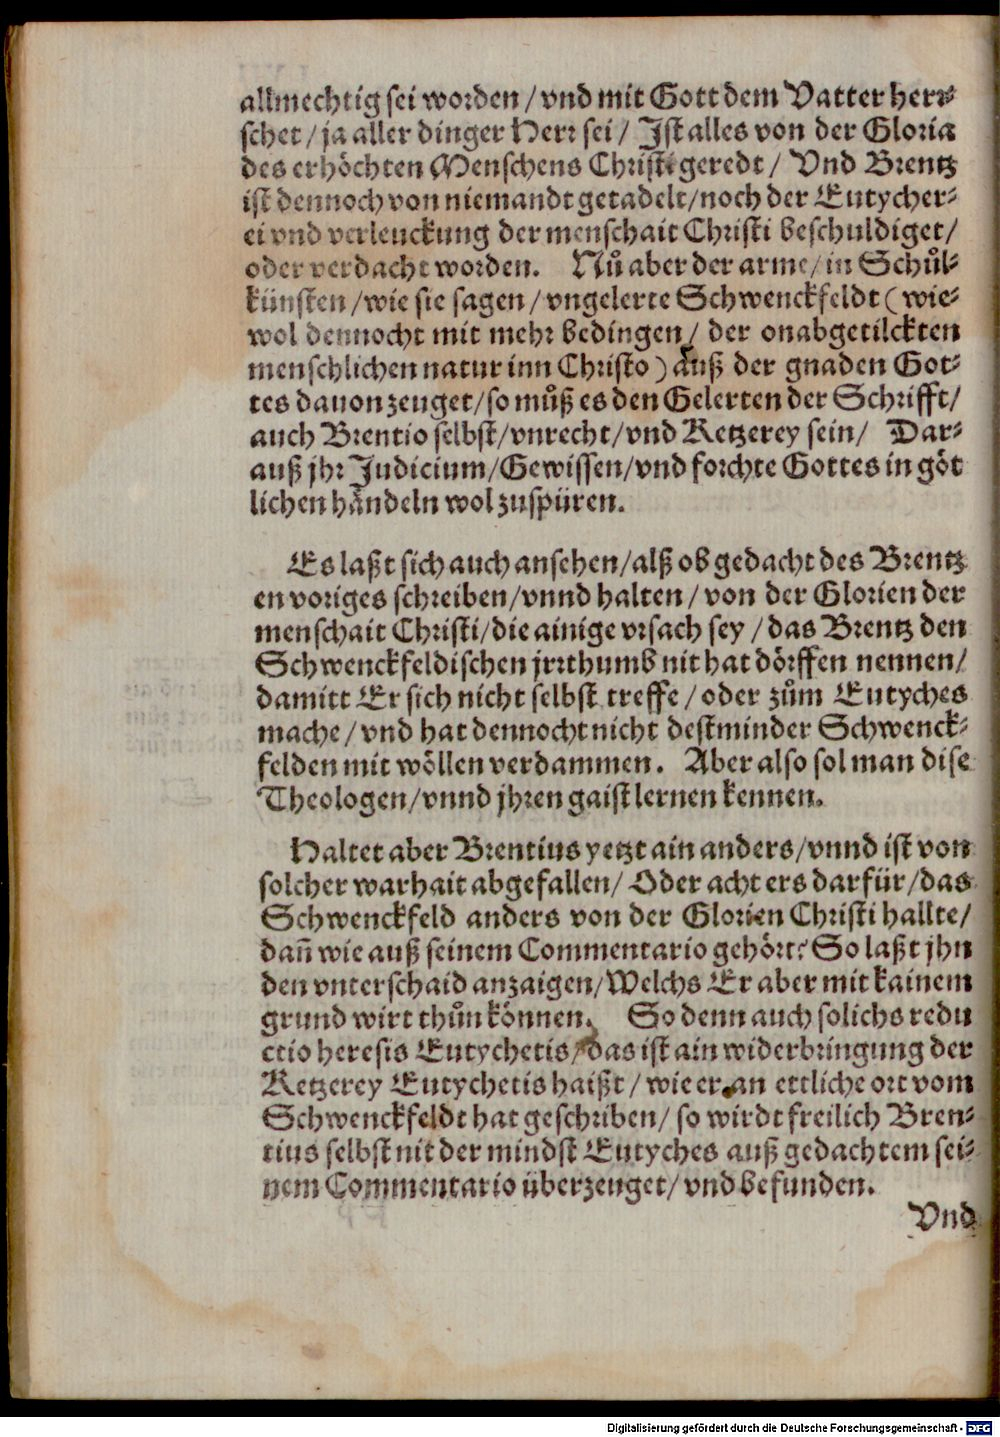 allmechtig sei worden / vnd mit Gott dem Vatter herr⸗
schet / ja aller dinger Herr sei / Ist alles von der Gloria
des erhöchten Menschens Christi geredt / Vnd Brentz
ist dennoch von niemandt getadelt / noch der Eutycher⸗
ei vnd verleuckung der menschait Christi beschuldiget /
oder verdacht worden. Nů aber der arme / in Schůl⸗
künsten / wie sie sagen / vngelerte Schwenckfeldt ( wie⸗
wol dennocht mit mehr bedingen / der onabgetilckten
menschlichen natur inn Christo ) auß der gnaden Got⸗
tes dauon zeuget / so můß es den Gelerten der Schrifft /
auch Brentio selbst / vnrecht / vnd Ketzerey sein / Dar⸗
auß jhr Judicium / Gewissen / vnd forchte Gottes in göt
lichen händeln wol zuspüren.
Es laßt sich auch ansehen / alß ob gedacht des Brentz
en voriges schreiben / vnnd halten / von der Glorien der
menschait Christi / die ainige vrsach sey / das Brentz den
Schwenckfeldischen jrrthumb nit hat dörffen nennen /
damitt Er sich nicht selbst treffe / oder zům Eutyches
mache / vnd hat dennocht nicht destminder Schwenck⸗
felden mit wöllen verdammen. Aber also sol man dise
Theologen / vnnd jhren gaist lernen kennen.
Haltet aber Brentius yetzt ain anders / vnnd ist von
solcher warhait abgefallen / Oder acht ers darfür / das
Schwenckfeld anders von der Glorien Christi hallte /
dañ wie auß seinem Commentario gehört? So laßt jhn
den vnterschaid anzaigen / Welchs Er aber mit kainem
grund wirt thůn können. So denn auch solichs redu
ctio heresis Eutychetis / das ist ain widerbringung der
Ketzerey Eutychetis haißt / wie er an ettliche ort vom
Schwenckfeldt hat geschriben / so wirdt freilich Bren⸗
tius selbst nit der mindst Eutyches auß gedachtem sei⸗
nem Commentario überzeuget / vnd befunden.
Vnd
Digitalisierung gefördert durch die Deutsche Forschungsgemeinschaft - DFG